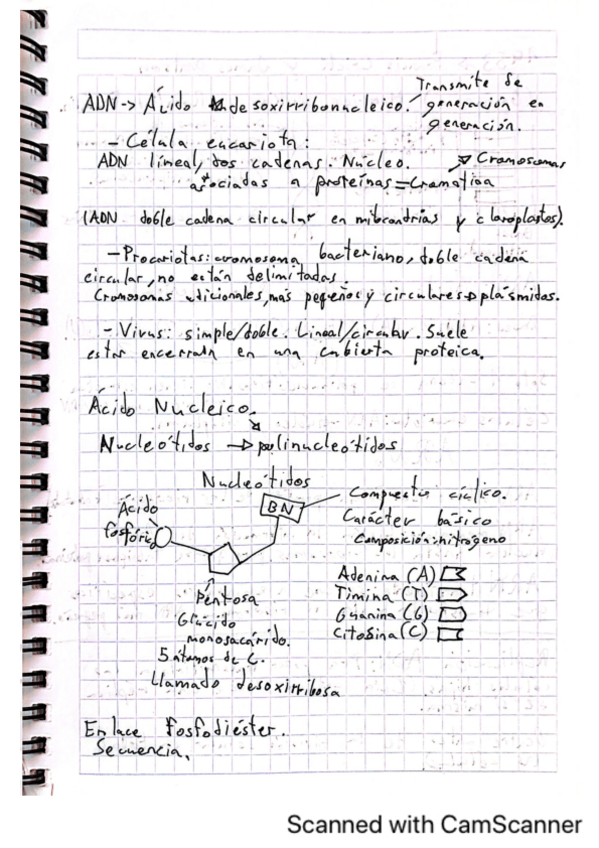 Transmite de
ADN -> Ácido desoxirribonucleico. generación en
generación.
- Célula eucariota:
ADN lineal, dos cadenas. Núcleo. Cromosomas
asociadas a proteínas = Cromatina
(ADN doble cadena circular en mitocondrias y cloroplastos).
- Procariotas: cromosoma bacteriano, doble cadena
circular, no están delimitadas.
Cromosomas adicionales, más pequeños y circulares -> plásmidos.
- Virus: simple/doble. Lineal/circular. Suele
estar encerrada en una cubierta proteica.
Ácido Nucleico.
Nucleótidos -> polinucleótidos
Nucleótidos
BN
Compuesto cíclico.
Ácido
Carácter básico
fosfórico
Composición: nitrógeno
Adenina (A)
Timina (T)
Pentosa
Guanina (G)
Glúcido
Citosina (C)
monosacárido.
5 átomos de C.
Llamado desoxirribosa
Enlace fosfodiéster.
Secuencia.
Scanned with CamScanner